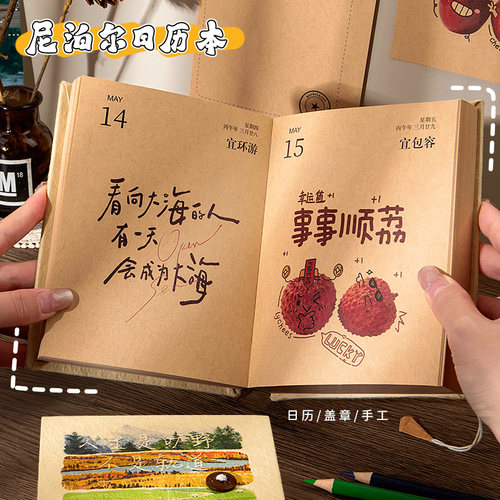 尼泊尔日历本
MAY
14
星期四
丙午年 三月廿八
宜环游
看向大海的人
有一天
会成为大海
Open
Sea
MAY
15
星期五
丙午年 三月廿九
宜包容
幸运值 +1 +1
事事顺荔
+1
+1
lychees
LUCKY
日历/盖章/手工
人生是旷野
不是轨道
M 18